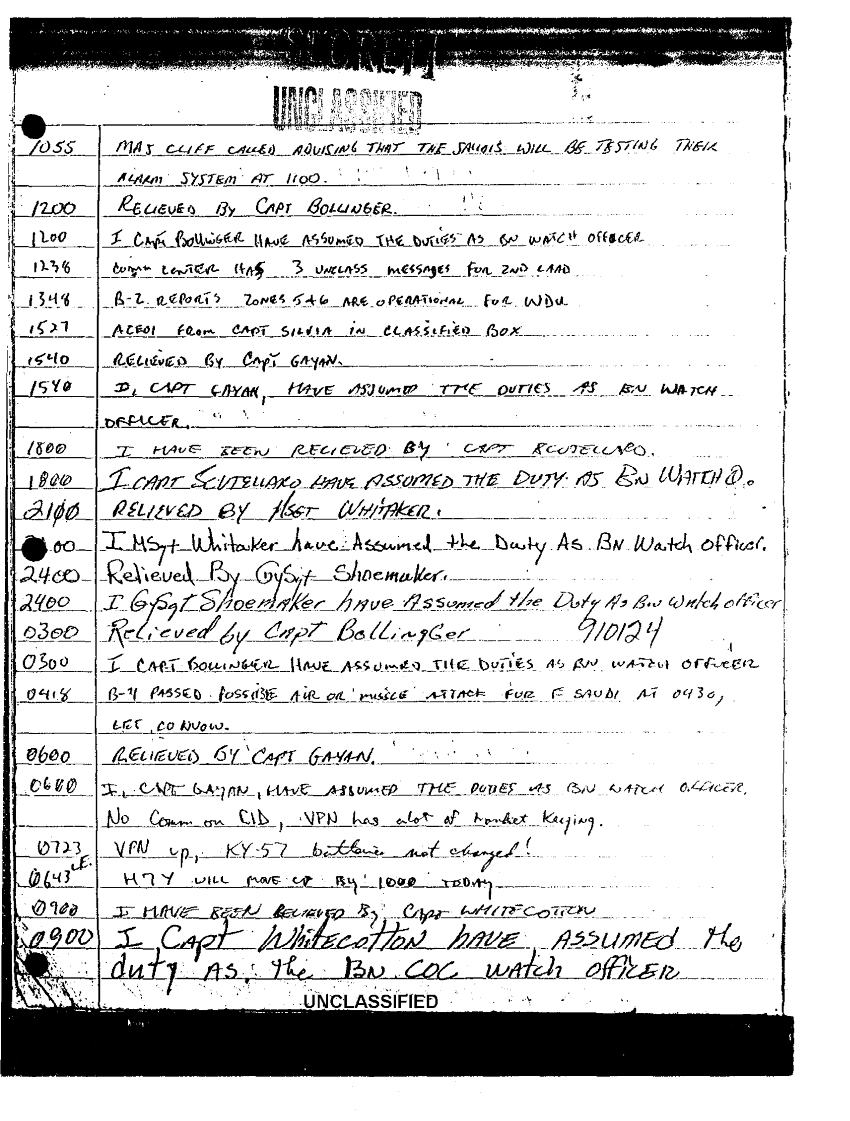 SECRET
UNCLASSIFIED
1055 MAJ CLIFF CALLED ADVISING THAT THE SAUDIS WILL BE TESTING THEIR
ALARM SYSTEM AT 1100.
1200 RELIEVED BY CAPT BOLLINGER.
1200 I CAPT BOLLINGER HAVE ASSUMED THE DUTIES AS BN WATCH OFFICER
1238 COMM CENTER HAS 3 UNCLASS MESSAGES FOR 2ND LAAD
1348 B-2 REPORTS ZONES 5+6 ARE OPERATIONAL FOR WDU
1527 ACEOI FROM CAPT SILVIA IN CLASSIFIED BOX
1540 RELIEVED BY CAPT GAYAN.
1540 I, CAPT GAYAN, HAVE ASSUMED THE DUTIES AS BN WATCH
OFFICER.
1800 I HAVE BEEN RELIEVED BY CAPT SCUTELLARO.
1800 I CAPT SCUTELLARO HAVE ASSUMED THE DUTY AS BN WATCH O.
2100 RELIEVED BY MSGT WHITAKER.
00 I MSgt Whitaker have Assumed the Duty As BN Watch Officer.
2400 Relieved By GySgt Shoemaker.
2400 I GySgt Shoemaker have Assumed the Duty As BN Watch officer
0300 Relieved by Capt BollingGer 910124
0300 I CAPT BOLLINGER HAVE ASSUMED THE DUTIES AS BN WATCH OFFICER
0418 B-4 PASSED POSSIBLE AIR OR MISSLE ATTACK FOR E SAUDI AT 0430,
0600 RELIEVED BY CAPT GAYAN.
0600 I, CAPT GAYAN, HAVE ASSUMED THE DUTIES AS BN WATCH OFFICER.
No Comm on CID, VPN has alot of Keying.
0723 VPN up, KY-57 batteries not changed!
0643 L.E. H7Y WILL MOVE UP BY 1000 TODAY
0900 I HAVE BEEN RELIEVED By CAPT WHITECOTTON
0900 I CAPT WhitECOTTON hAVE ASSUMED the
duty AS the BN COC WATCh OFFICER
UNCLASSIFIED